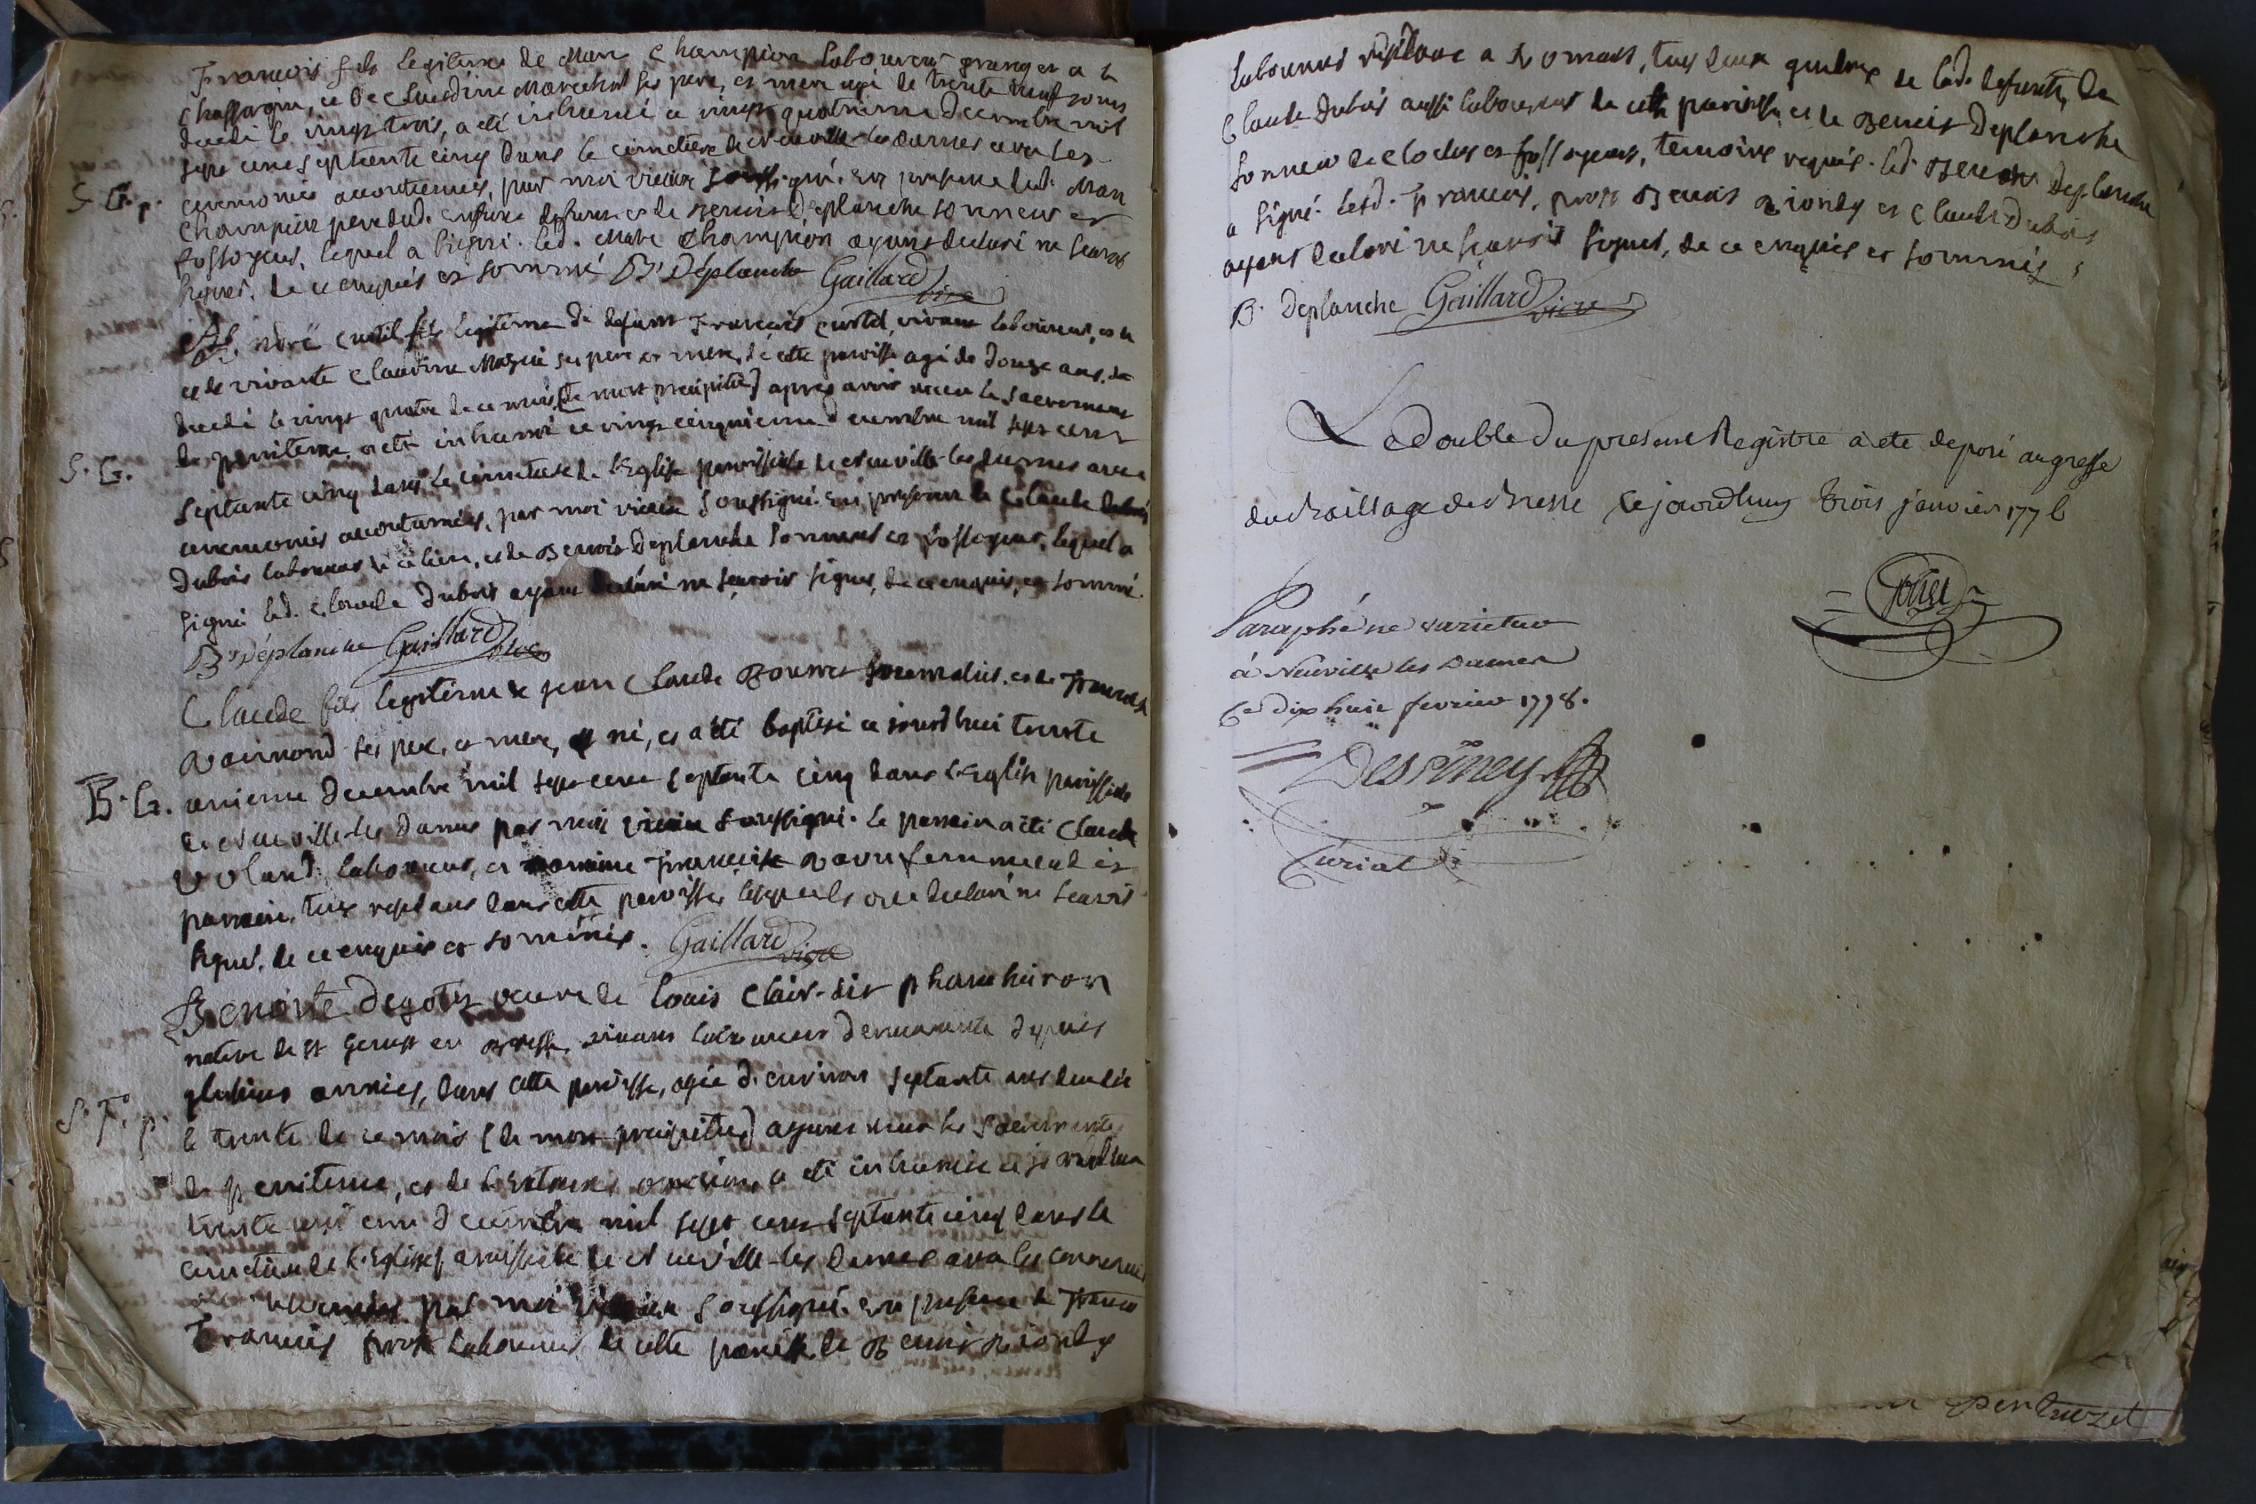 François fils légitime de Marc Champion laboureur granger a la
Chassagne, et de Claudine Marechal ses pere, et mere agé de trente neuf jours
decedé le vingt trois, a eté inhumé ce vingt quatrieme decembre mil
sept cent septante cinq dans le cimetiere de Neuville-les-dames avec les
S. G. p.
ceremonies accoutumées, par moi vicaire soussigné. en presence dud. Marc
Champion pere dud. enfant defunt et de Benoit Deplanche sonneur et
fossoyeur, lequel a signé. led. Marc Champion ayant declaré ne scavoir
signer, de ce enquis et sommé B. Déplanche Gaillard vire
André Curtil fils légitime de defunt François Curtil, vivant laboureur, et
et de vivante Claudine Mazui ses pere et mere, de cette paroisse agé de douze ans,
decedé le vingt quatre de ce mois (de mort precipitée) apres avoir receu le sacrement
de penitence, a eté inhumé ce vingt cinquieme decembre mil sept cent
S. G.
septante cinq dans le cimetiere de l'Eglise paroissiale de Neuville-les-dames avec
ceremonies accoutumées, par moi vicaire soussigné. en presence de Claude Dubois
Dubois laboureur de ce lieu, et de Benoit Deplanche sonneur et fossoyeur, lequel a
signé led. Claude Dubois ayant declaré ne scavoir signer, de ce enquis, et sommé.
B. Déplanche Gaillard vire
Claude fils legitime de jean Claude journalier, et de Françoise
ses pere, et mere, né, et a eté baptisé ce jourd'hui trente
B. G.
unieme decembre mil sept cent septante cinq dans l'Eglise paroissiale
de Neuville-les-dames par moi vicaire soussigné. le parrain a eté Claude
Voland laboureur, et marraine Françoise femme dud.
parrain, tous residans dans cette paroisse, lesquels ont declaré ne scavoir
signer, de ce enquis et sommés. Gaillard vire
Benoite Degotex veuve de Louis Clair-dit
native de St Genis en Bresse, vivant laboureur demeurante depuis
plusieurs années, dans cette paroisse, agée d'environ septante ans decedée
S. F. p.
le trente de ce mois (de mort precipitée) ayant receu les Sacrements
de penitence, et de l'Extreme onction, a eté inhumée ce jourd'hui
trente unieme decembre mil sept cent septante cinq dans le
cimetiere de l'Eglise paroissiale de Neuville-les-dames avec les ceremonies
accoutumées par moi vicaire soussigné. en presence de
François prost laboureur de cette paroisse de Benoit Riondy
laboureur residant a Romans, tous deux gendres de lad. defunte, de
Claude Dubois aussi laboureur de cette paroisse et de Benoit Deplanche
sonneur de cloches et fossoyeur, temoins requis. led. Benoit Deplanche
a signé. lesd. François prost Benoit Riondy et Claude Dubois
ayant declaré ne scavoir signer, de ce enquis et sommés
B. Deplanche Gaillard vire
Le double du present Registre a ete deposé au greffe
du Bailliage de Bresse cejourdhuy trois janvier 1776
Paraphé ne varietur
à Neuville les Dames
Ce dix huit fevrier 1778.
Despiney
Curial